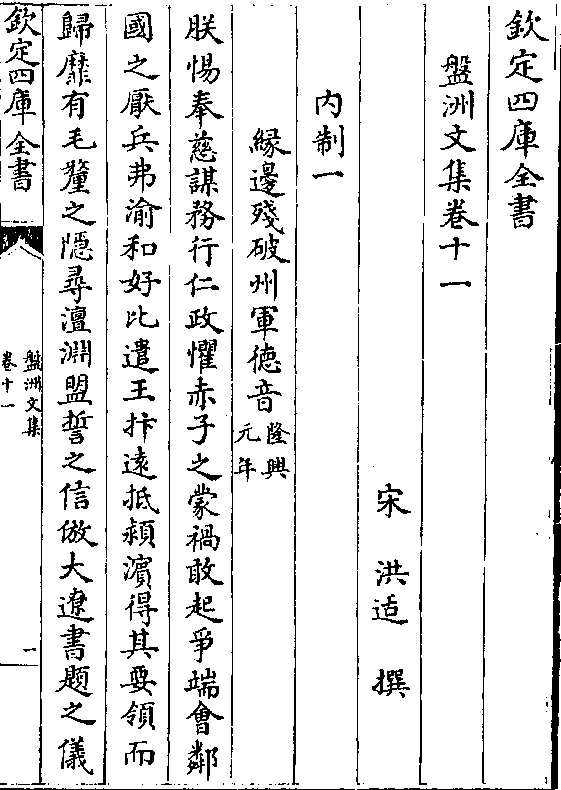 欽定四庫全書
盤洲文集卷十一
宋 洪适 撰
内制一
緣邊殘破州軍德音隆興元年
朕惕奉慈謀務行仁政懼赤子之蒙禍敢起爭端會鄰
國之厭兵弗渝和好比遣王抃遠抵潁濵得其要領而
歸靡有毛釐之隱尋澶淵盟誓之信倣大遼書題之儀
欽定四庫全書
盤洲文集
卷十一
一